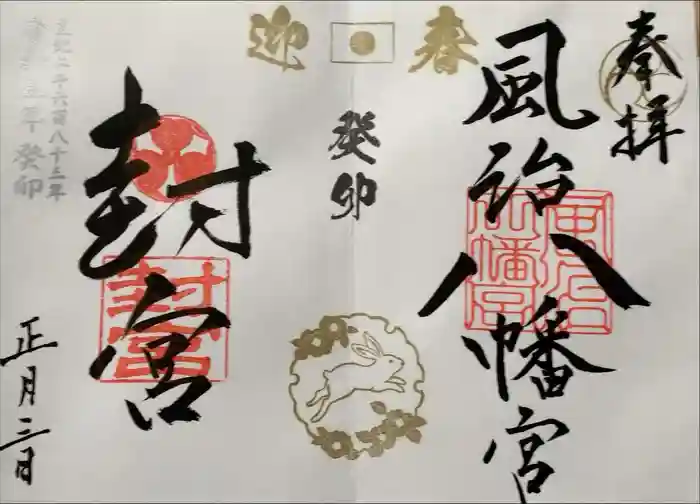 奉拝
風治八幡宮
風治八幡宮
迎春
癸卯
封宮
封宮
皇紀二千六百八十三年
令和五年癸卯
正月三日